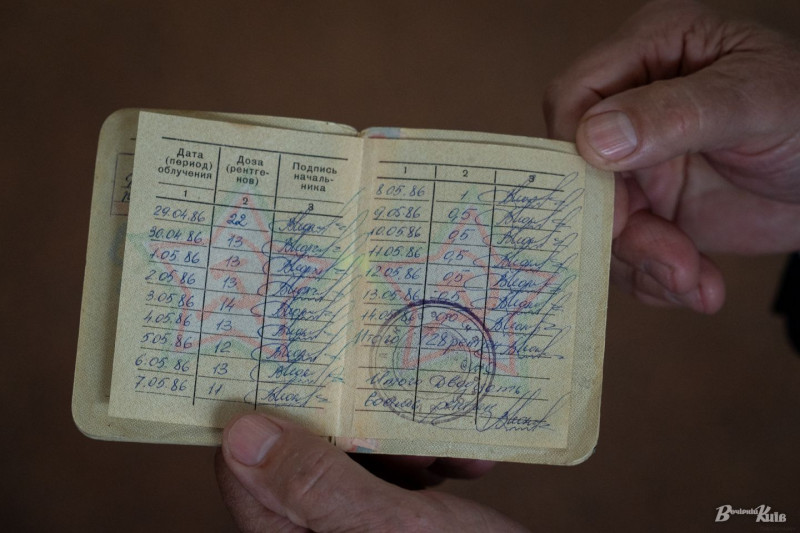 Дата (период) облучения Доза (рентгенов) Подпись начальника
1 2 3
29.04.86 22
30.04.86 13
1.05.86 13
2.05.86 13
3.05.86 14
4.05.86 13
5.05.86 12
6.05.86 13
7.05.86 11
1 2 3
8.05.86 1
9.05.86 0,5
10.05.86 0,5
11.05.86 0,5
12.05.86 0,5
13.05.86 0,5
14.05.86
Итого 28
Итого двадцать
восемь
Вечірній Київ